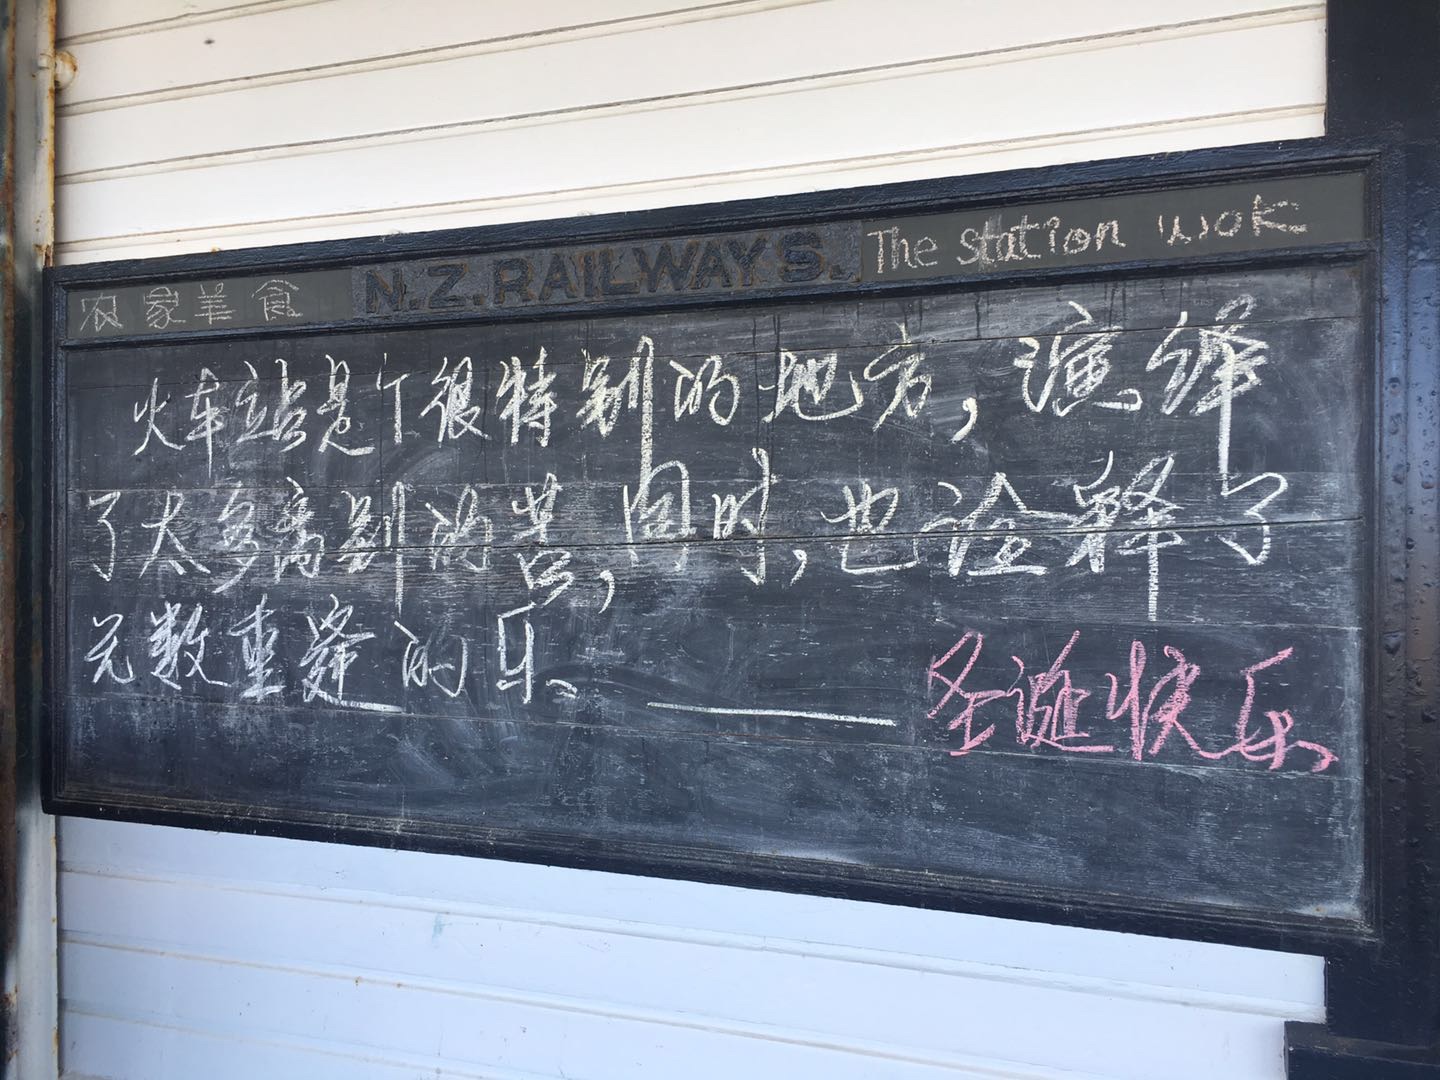 农家美食 N.Z.RAILWAYS. The station wok
火车站是个很特别的地方,演绎
了太多离别的苦,同时,也诠释了
无数重逢的乐、
——圣诞快乐、